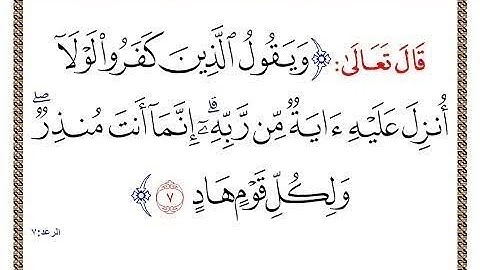 قَالَ تَعَالَىٰ: ﴿وَيَقُولُ ٱلَّذِينَ كَفَرُواْ لَوۡلَآ
أُنزِلَ عَلَيۡهِ ءَايَةٞ مِّن رَّبِّهِۦٓۗ إِنَّمَآ أَنتَ مُنذِرٞۖ
وَلِكُلِّ قَوۡمٍ هَادٍ ٧﴾
الرعد:٧